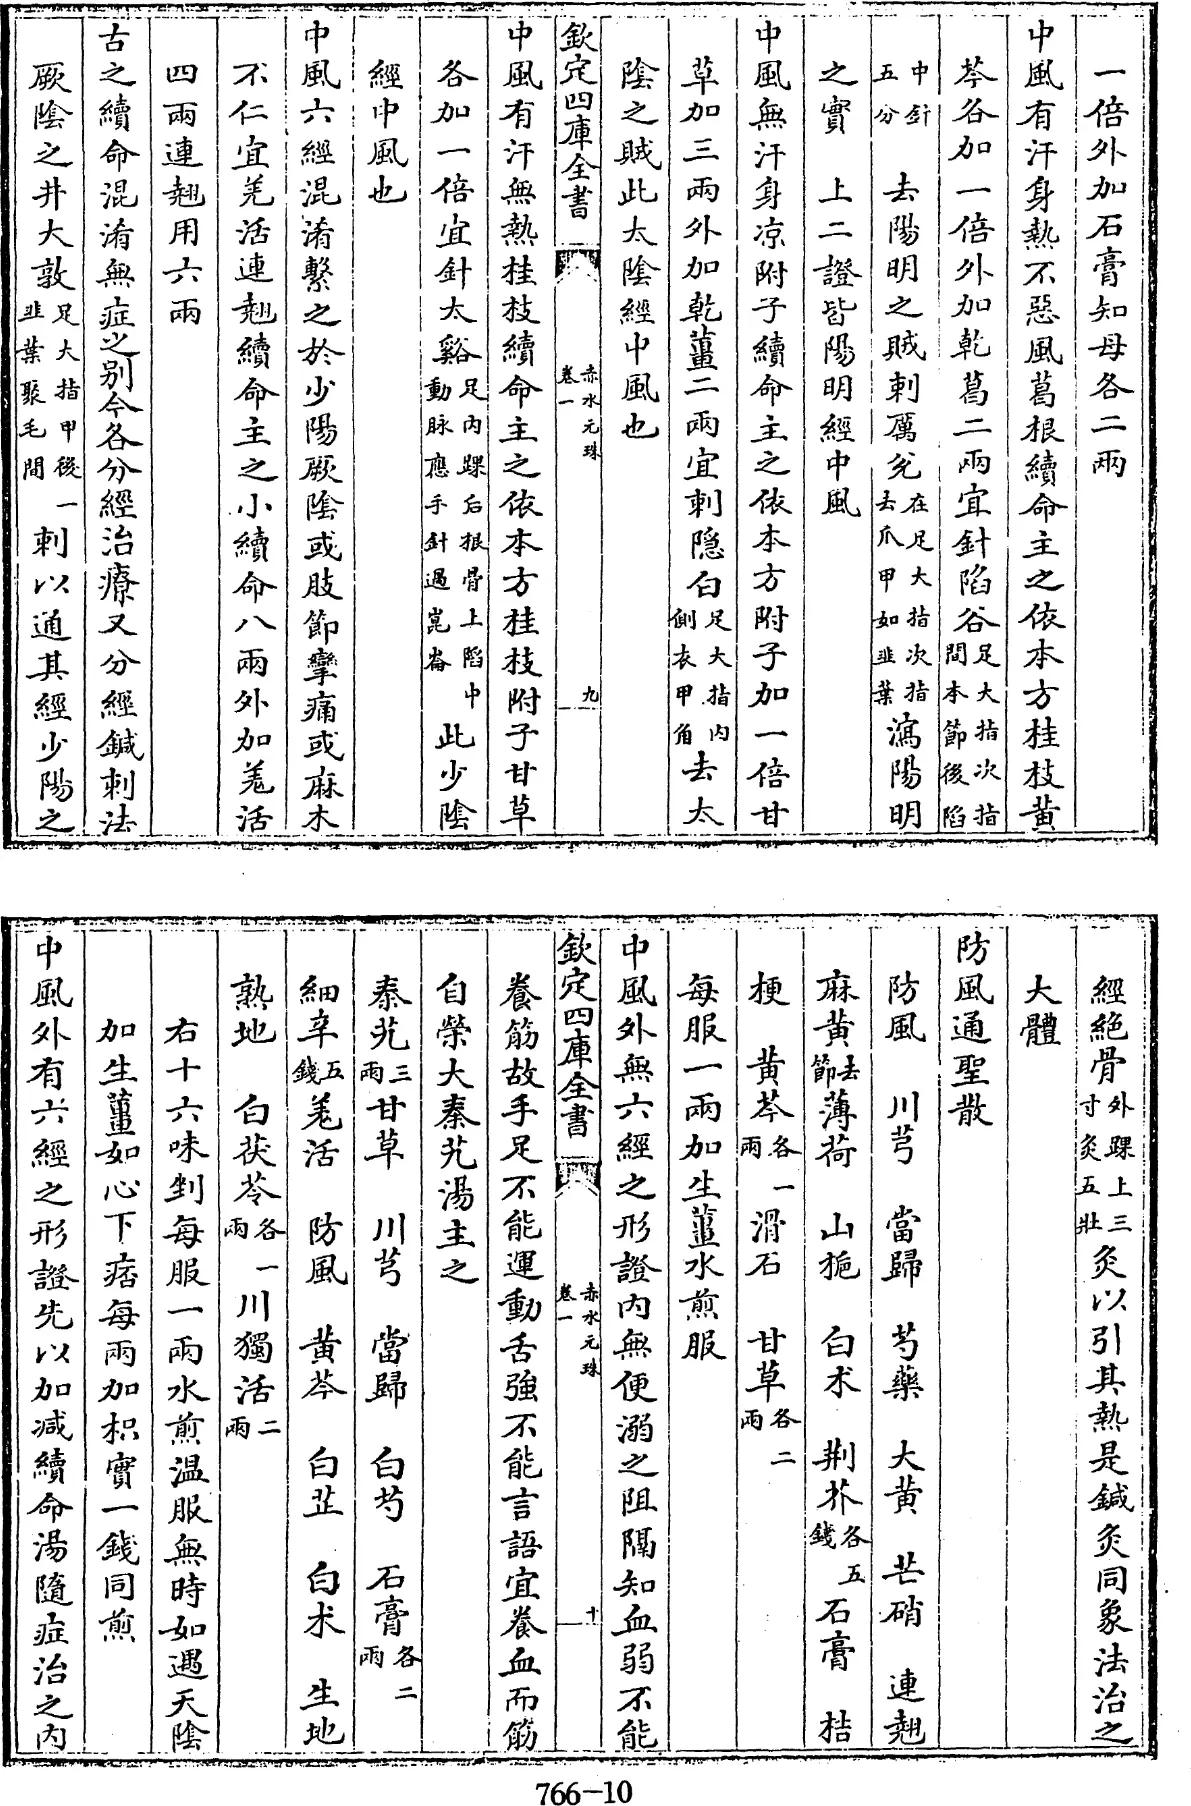 一倍外加石膏知母各二兩
中風有汗身熱不惡風葛根續命主之依本方桂枝黄
芩各加一倍外加乾葛二兩宜針陷谷足大指次指間本節後陷
中針五分去陽明之賊刺厲兊在足大指次指去爪甲如韭葉瀉陽明
之實　上二證皆陽明經中風
中風無汗身凉附子續命主之依本方附子加一倍甘
草加三兩外加乾薑二兩宜刺隐白足大指内側衣甲角去太
陰之賊此太陰經中風也
欽定四庫全書　赤水元珠卷一　九
中風有汗無熱桂枝續命主之依本方桂枝附子甘草
各加一倍宜針太谿足内踝后根骨上陷中動脉應手針過崑崙此少陰
經中風也
中風六經混淆繫之於少陽厥陰或肢節攣痛或麻木
不仁宜羌活連翹續命主之小續命八兩外加羌活
四兩連翹用六兩
古之續命混淆無症之别今各分經治療又分經鍼刺法
厥陰之井大敦足大指甲後一韭葉聚毛間刺以通其經少陽之
經絶骨外踝上三寸灸五壯灸以引其熱是鍼灸同象法治之
大體
防風通聖散
防風　川芎　當歸　芍藥　大黄　芒硝　連翹
麻黄去節薄荷　山梔　白术　荆芥各五錢石膏　桔
梗　黄芩各一兩滑石　甘草各二兩
每服一兩加生薑水煎服
中風外無六經之形證内無便溺之阻隔知血弱不能
欽定四庫全書　赤水元珠卷一　十
養筋故手足不能運動舌強不能言語宜養血而筋
自榮大秦艽湯主之
秦艽三兩甘草　川芎　當歸　白芍　石膏各二兩
細辛五錢羌活　防風　黄芩　白芷　白术　生地
熟地　白茯苓各一兩川獨活二兩
右十六味剉每服一兩水煎温服無時如遇天陰
加生薑如心下痞每兩加枳實一錢同煎
中風外有六經之形證先以加减續命湯隨症治之内
766-10